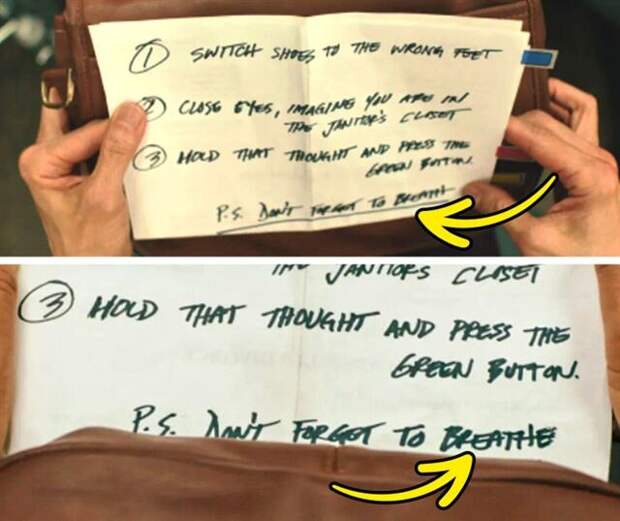 ① SWITCH SHOES TO THE WRONG FEET
② CLOSE EYES, IMAGINE YOU ARE IN
THE JANITOR'S CLOSET
③ HOLD THAT THOUGHT AND PRESS THE
GREEN BUTTON.
P.S. DON'T FORGET TO BREATH
THE JANITORS CLOSET
③ HOLD THAT THOUGHT AND PRESS THE
GREEN BUTTON.
P.S. DON'T FORGET TO BREATHE